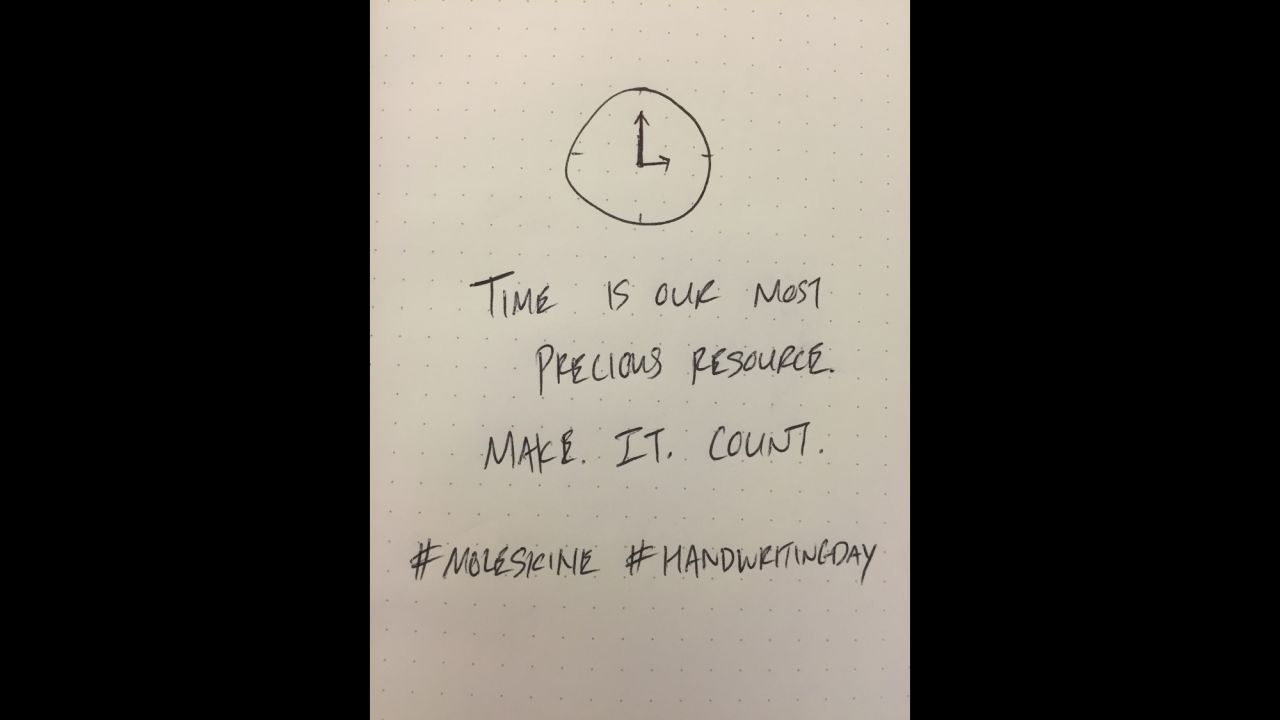 TIME IS OUR MOST
PRECIOUS RESOURCE.
MAKE. IT. COUNT.
#MOLESKINE #HANDWRITINGDAY